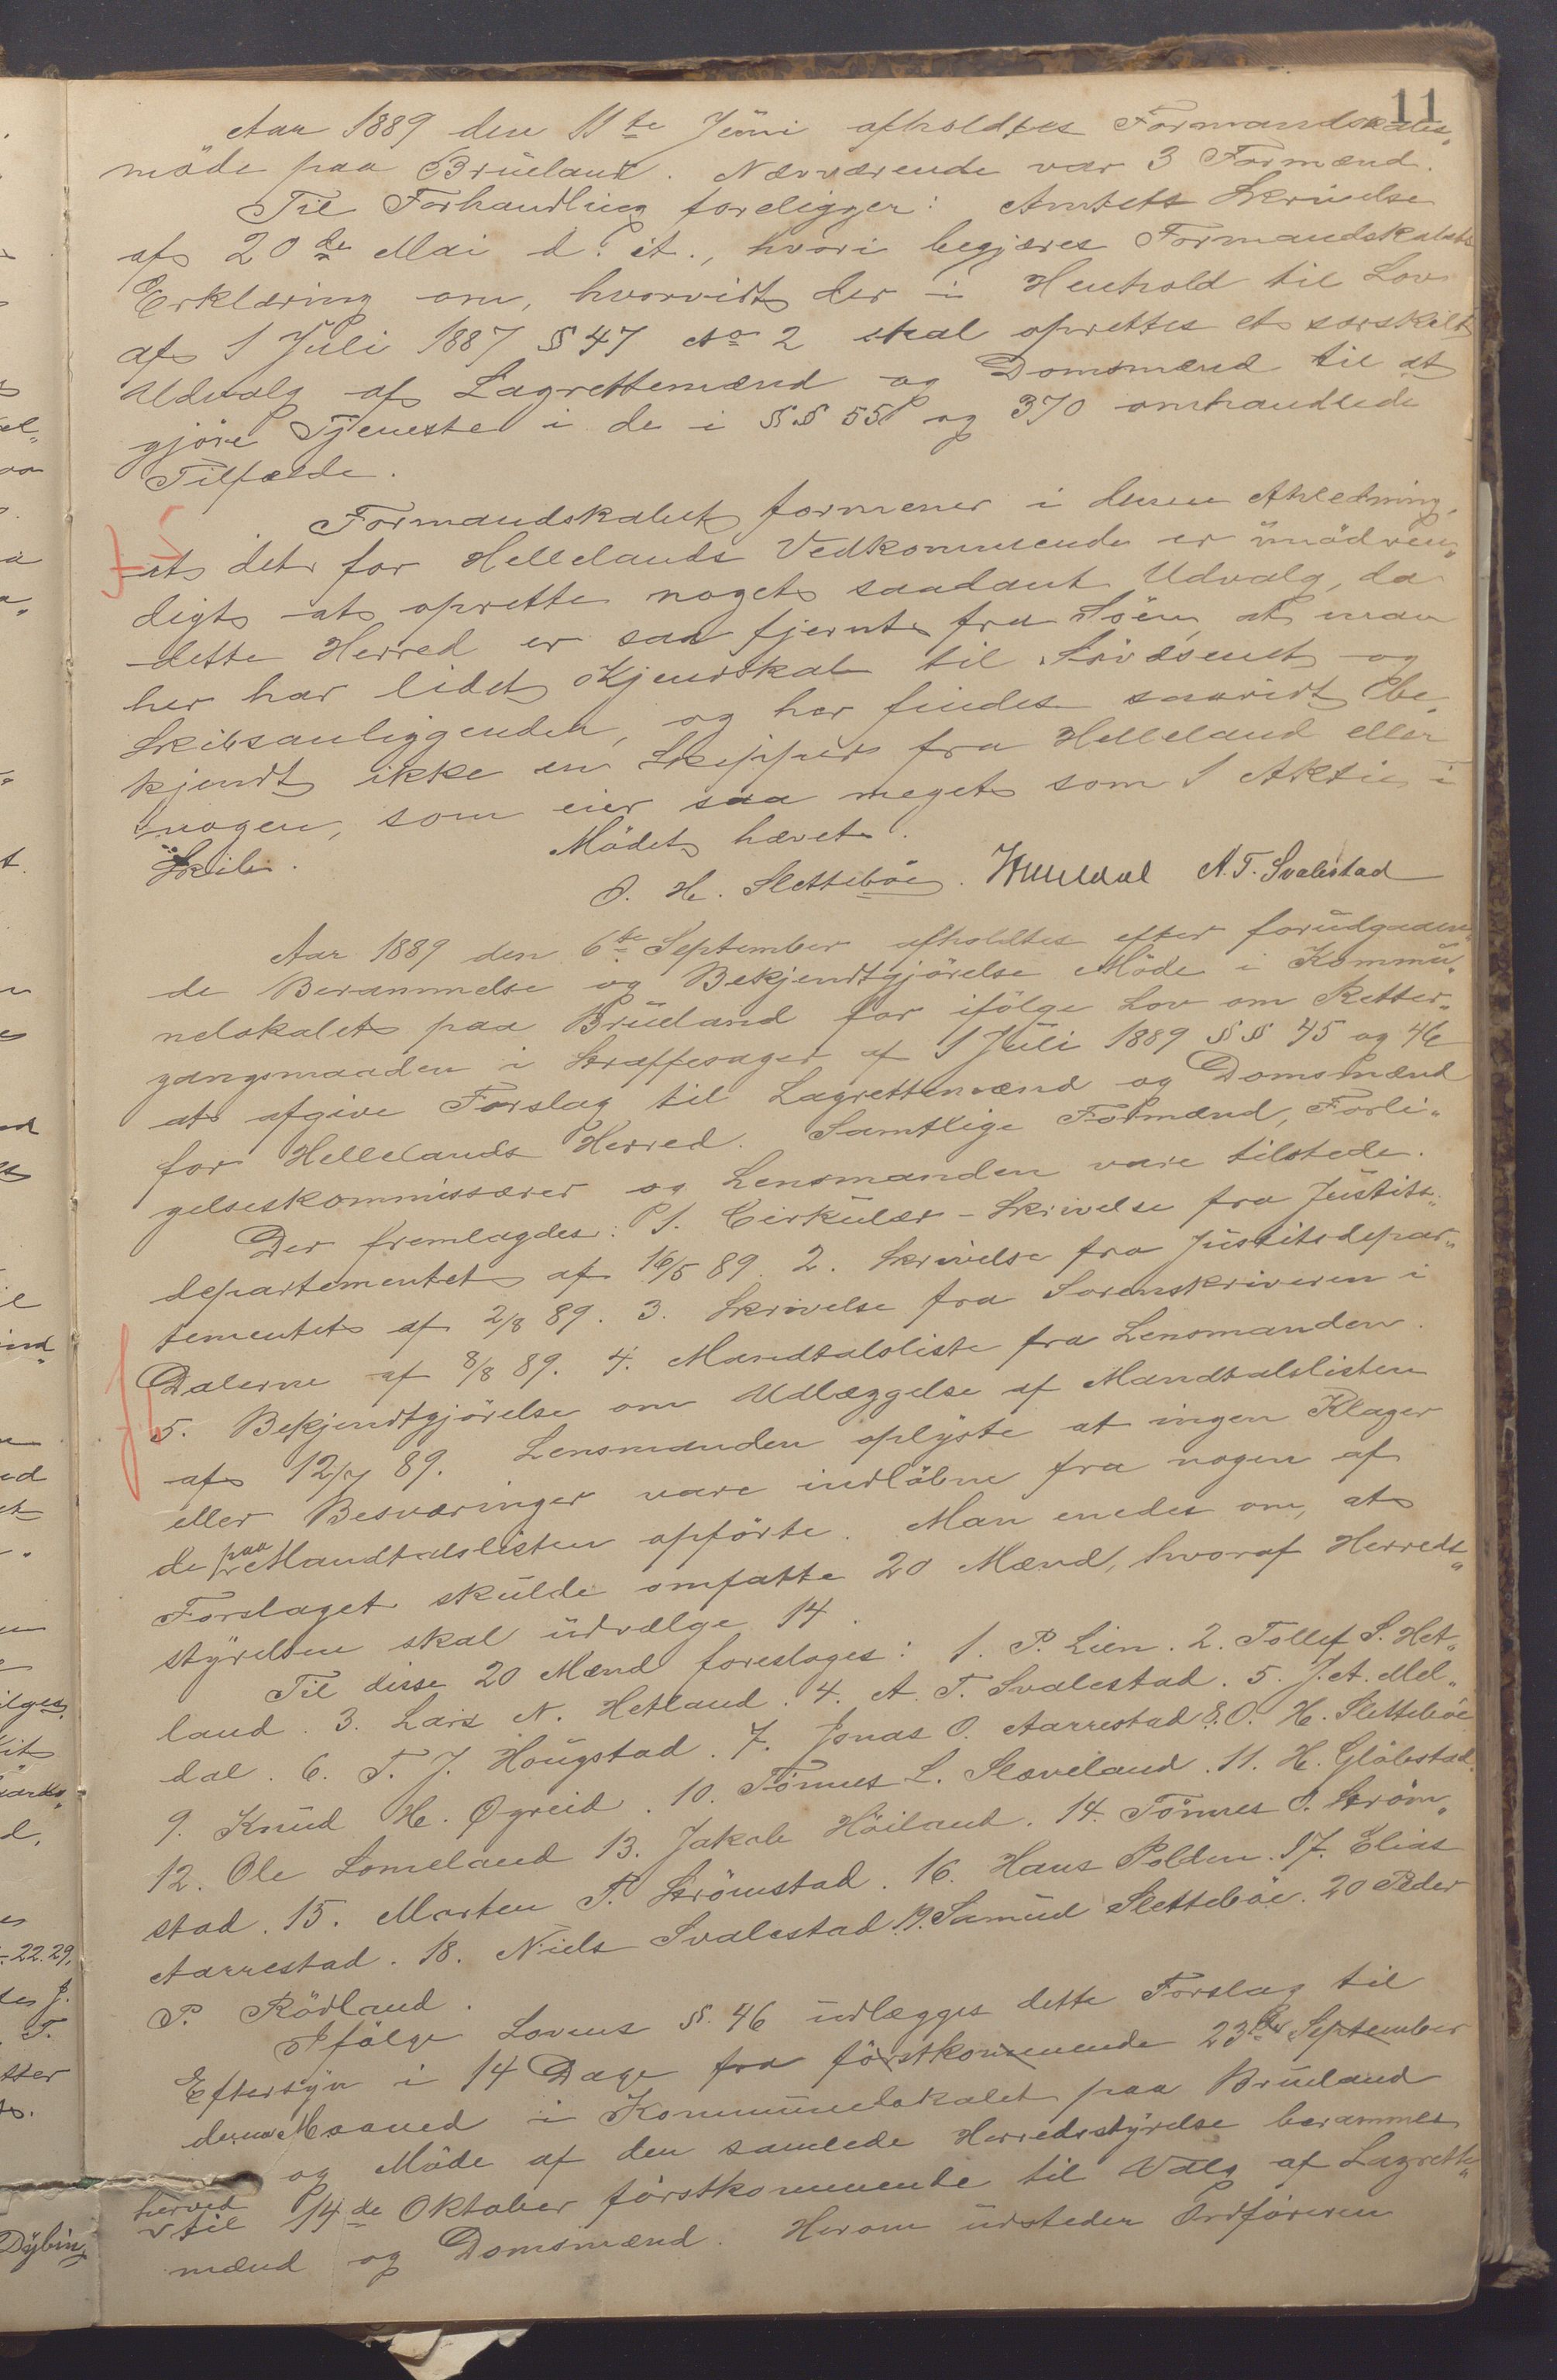 11
Aar 1889 den 11te Juni afholdtes Formandskabs„
möde paa Brueland. Nærværende var 3 Formænd.
Til Forhandling foreligger: Amtets Skrivelse
af 20de Mai d. A., hvori begjæres Formandskabets
Erklæring om, hvorvidt der i Henhold til Lov
af 1 Juli 1887 § 47 No 2 skal oprettes et særskilt
Udvalg af Lagrettemænd og Domsmænd til at
gjöre Tjeneste i de i §§ 55 og 370 omhandlede
Tilfælde.
Formandskabet formener i denne Anledning,
at det for Hellelands Vedkommende er unödven„
digt at oprette noget saadant Udvalg, da
dette Herred er saa fjernt fra Söen, at man
her har lidet Kjendskab til Sövæsenet og
Skibsanliggender, og her findes saavidt be„
kjendt ikke en Skipper fra Helleland eller
nogen, som eier saa meget som 1 Aktie i
Skib.
Mödet hævet.
O. H. Sletteböe. A. T. Svalestad
Aar 1889 den 6te September afholdtes efter forudgaaen„
de Berammelse og Bekjendtgjörelse Möde i Kommu„
nelokalet paa Brueland for ifölge Lov om Retter„
gangsmaaden i Straffesager af 1 Juli 1889 §§ 45 og 46
at afgive Forslag til Lagrettemænd og Domsmænd
for Hellelands Herred. Samtlige Formænd, Forli„
gelseskommissærer og Lensmanden vare tilstede.
Der fremlagdes: 1. Cirkulær-Skrivelse fra Justits„
departementet af 16/5 89. 2. Skrivelse fra Justitsdepar„
tementet af 2/8 89. 3. Skrivelse fra Sorenskriveren i
Dalerne af 8/8 89. 4. Mandtalsliste fra Lensmanden.
5. Bekjendtgjörelse om Udlæggelse af Mandtalslisten
af 12/7 89. Lensmanden oplyste at ingen Klager
eller Besværinger vare indlöbne fra nogen af
de paa Mandtalslisten opförte. Man enedes om, at
Forslaget skulde omfatte 20 Mænd, hvoraf Herreds„
styrelsen skal udvælge 14.
Til disse 20 Mænd foresloges: 1. P. Lien. 2. Tollef S. Het„
land. 3. Lars N. Hetland. 4. A. T. Svalestad. 5. J. A. Mel„
dal. 6. T. J. Hougstad. 7. Jonas O. Aarrestad 8. O. H. Sletteböe
9. Knud H. Øgreid. 10. Tönnes L. Skæveland. 11. H. Glöbstad.
12. Ole Lomeland 13. Jakob Höiland. 14. Tönnes O. Ström„
stad. 15. Morten T. Strömstad. 16. Hans Polden. 17. Elias
Aarrestad. 18. Niels Svalestad. 19. Samuel Sletteböe. 20 Peder
P. Rödland.
Ifölge Lovens §. 46 udlægges dette Forslag til
Eftersyn i 14 Dage fra förstkommende 23de September
denne Maaned i Kommunelokalet paa Brueland
og Möde af den samlede Herredsstyrelse berammes
herved
til 14de Oktober förstkommende til Valg af Lagrette„
mænd og Domsmænd. Herom udsteder Ordföreren